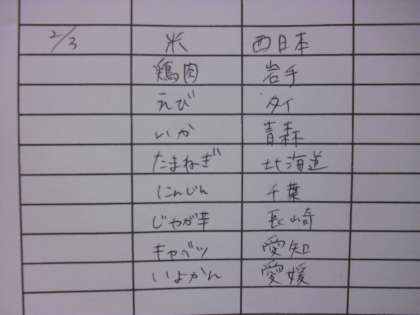 2/3 米 西日本
鶏肉 岩手
えび タイ
いか 青森
たまねぎ 北海道
にんじん 千葉
じゃが芋 長崎
キャベツ 愛知
いよかん 愛媛